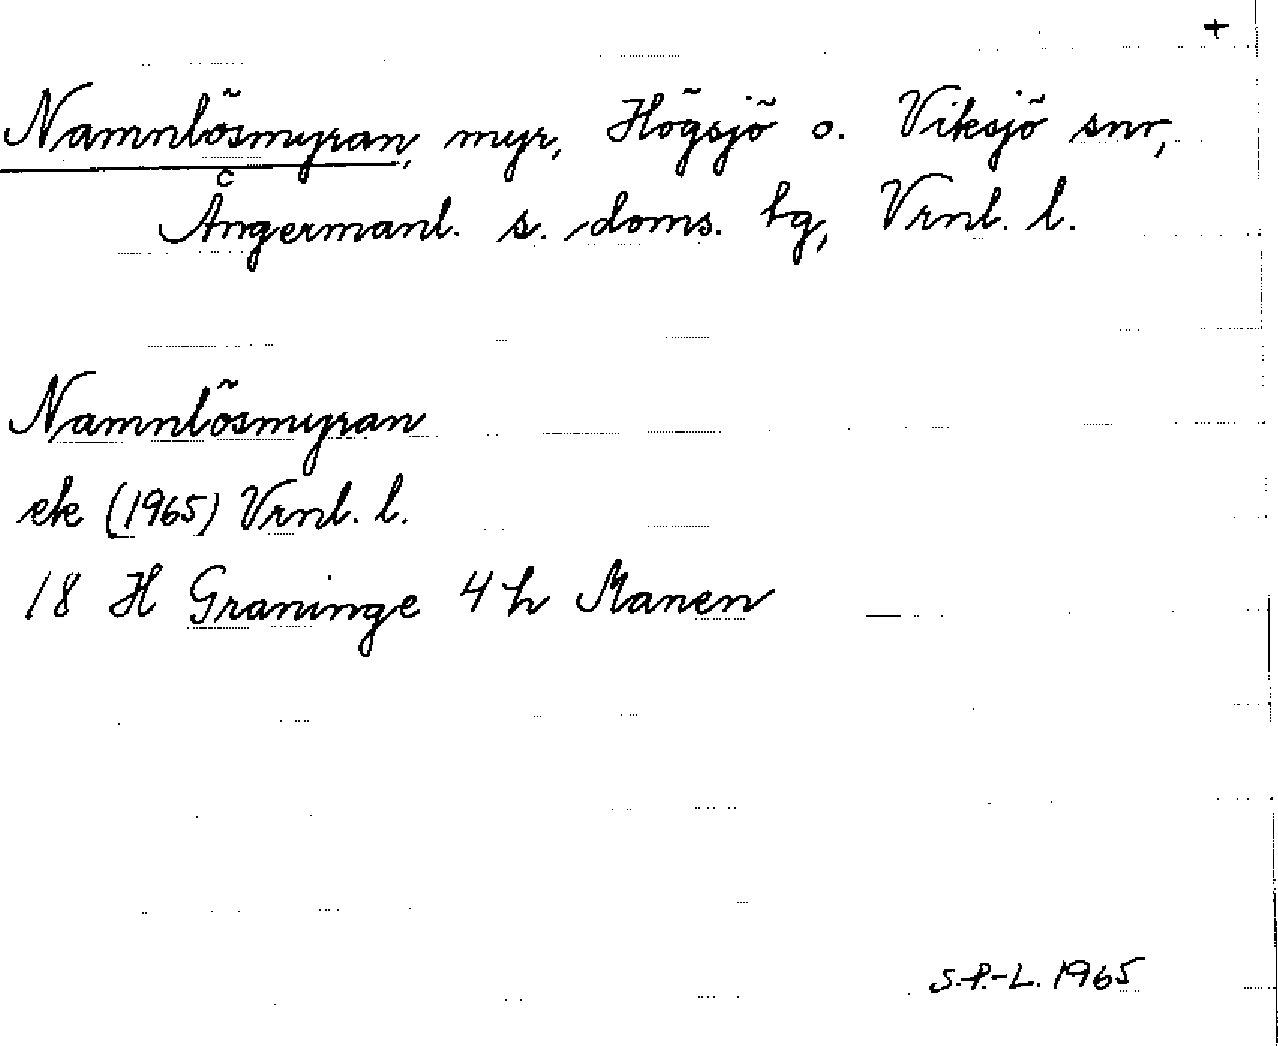 +
Namnlösmyran, myr, Högsjö o. Viksjö snr,
Ångermanl. s. doms. tg, Vrnl. l.
Namnlösmyran
ek (1965) Vrnl. l.
18 H Graninge 4 h Manen
S.P.-L. 1965